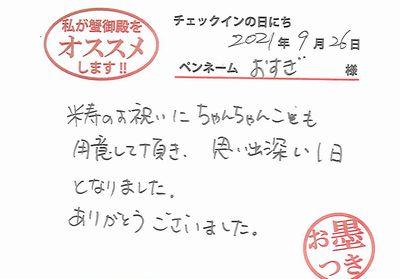 私が蟹御殿を
オススメ
します!!
チェックインの日にち
2021年9月26日
ペンネーム おすぎ 様
米寿のお祝いにちゃんちゃんこも
用意して頂き、思い出深い1日
となりました。
ありがとうございました。
お墨
つき